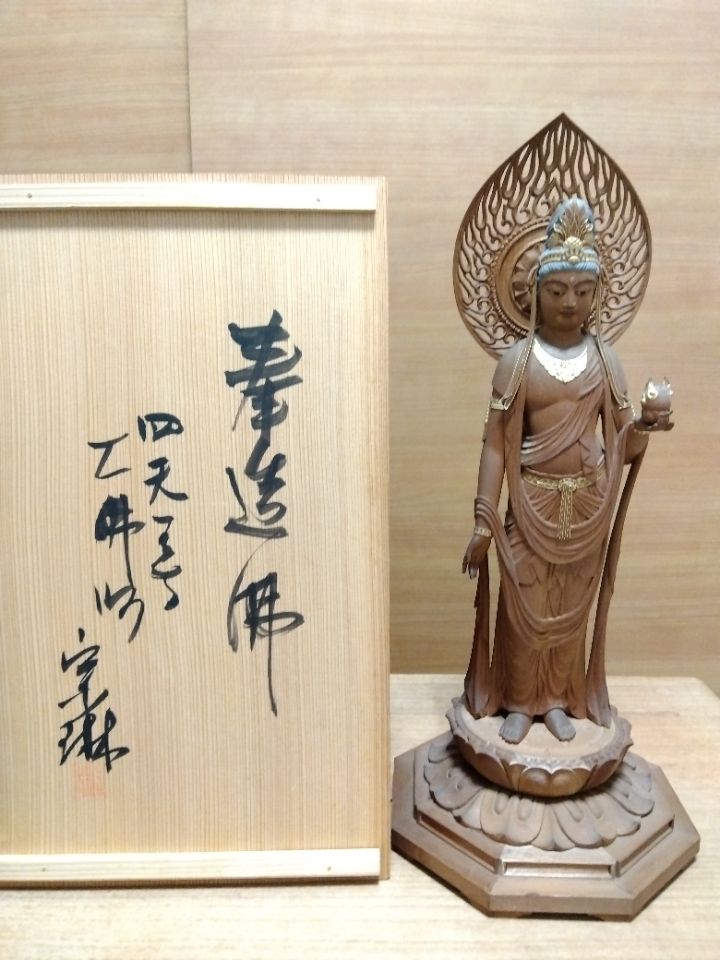 奉造佛
四天王寺
大佛師
宗琳